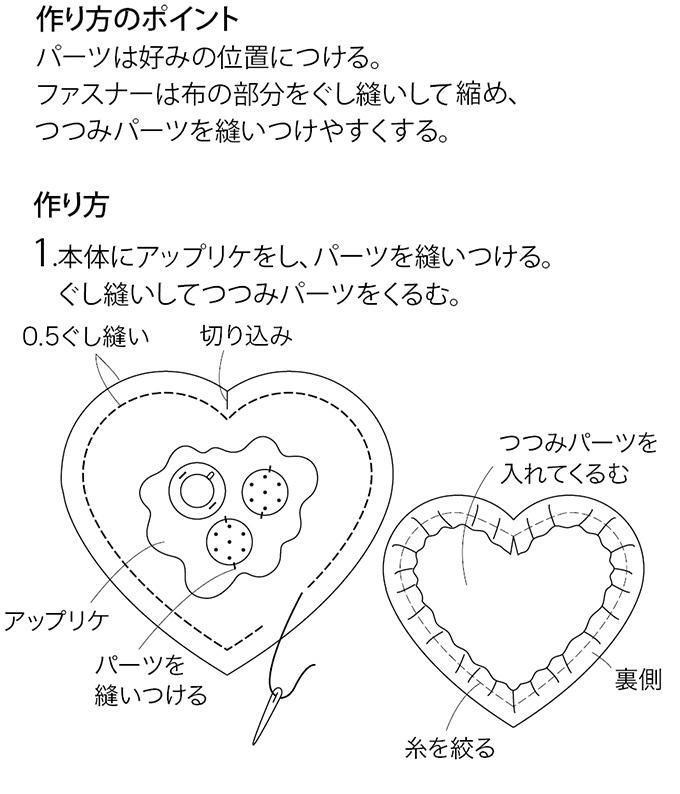 作り方のポイント
パーツは好みの位置につける。
ファスナーは布の部分をぐし縫いして縮め、
つつみパーツを縫いつけやすくする。
作り方
1.本体にアップリケをし、パーツを縫いつける。
ぐし縫いしてつつみパーツをくるむ。
0.5ぐし縫い
切り込み
つつみパーツを
入れてくるむ
アップリケ
パーツを
縫いつける
裏側
糸を絞る